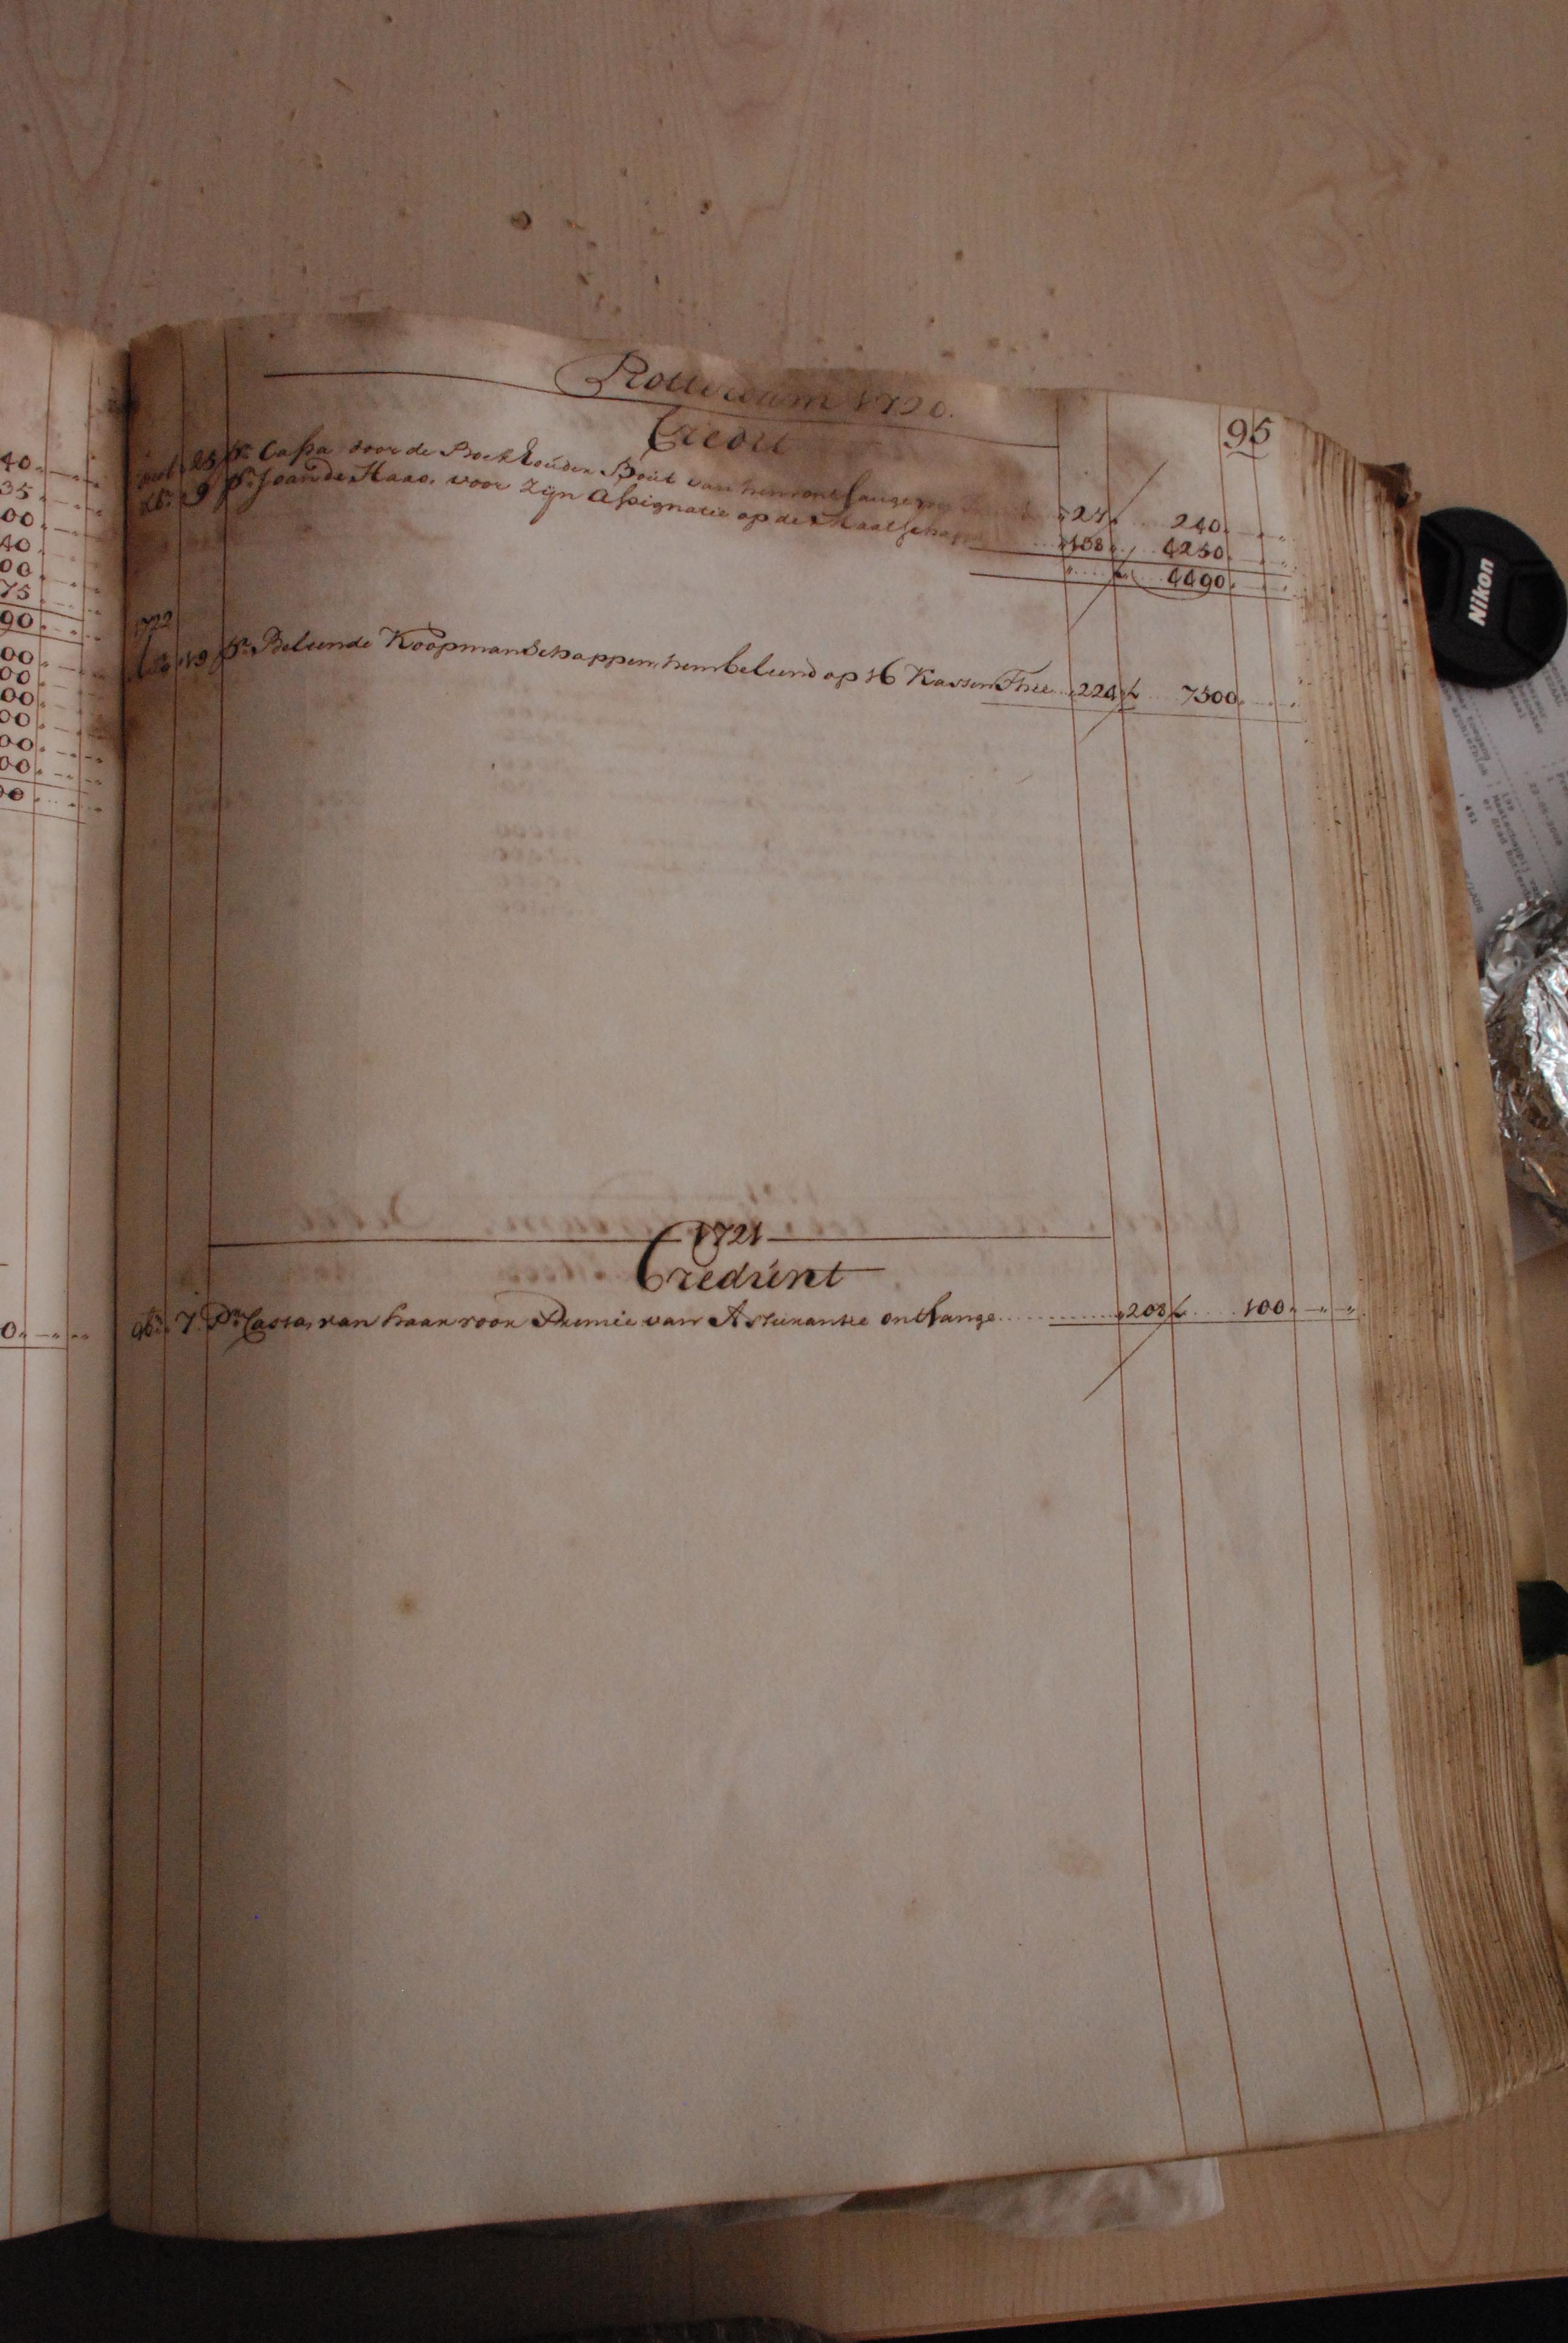 40
35
00
40
00
75
90
00
00
00
00
00
00
00
0
Rotterdam 1720.
Credit
95
25 Pr. Cassa voor de Boekhouder Bout van hem ontfange 24 240
9 Pr. Joan de Haas, voor Zijn Assignatie op de Maatschapp 108 4250
4490
1722
19 Pr. Beleende Koopmanschappen, hem beleend op 16 Kassen Thee 224 7500
1721
Credit
9br 7 Pr. Cassa, van haar voor Premie van Assurantie ontfange 208 100
Nikon